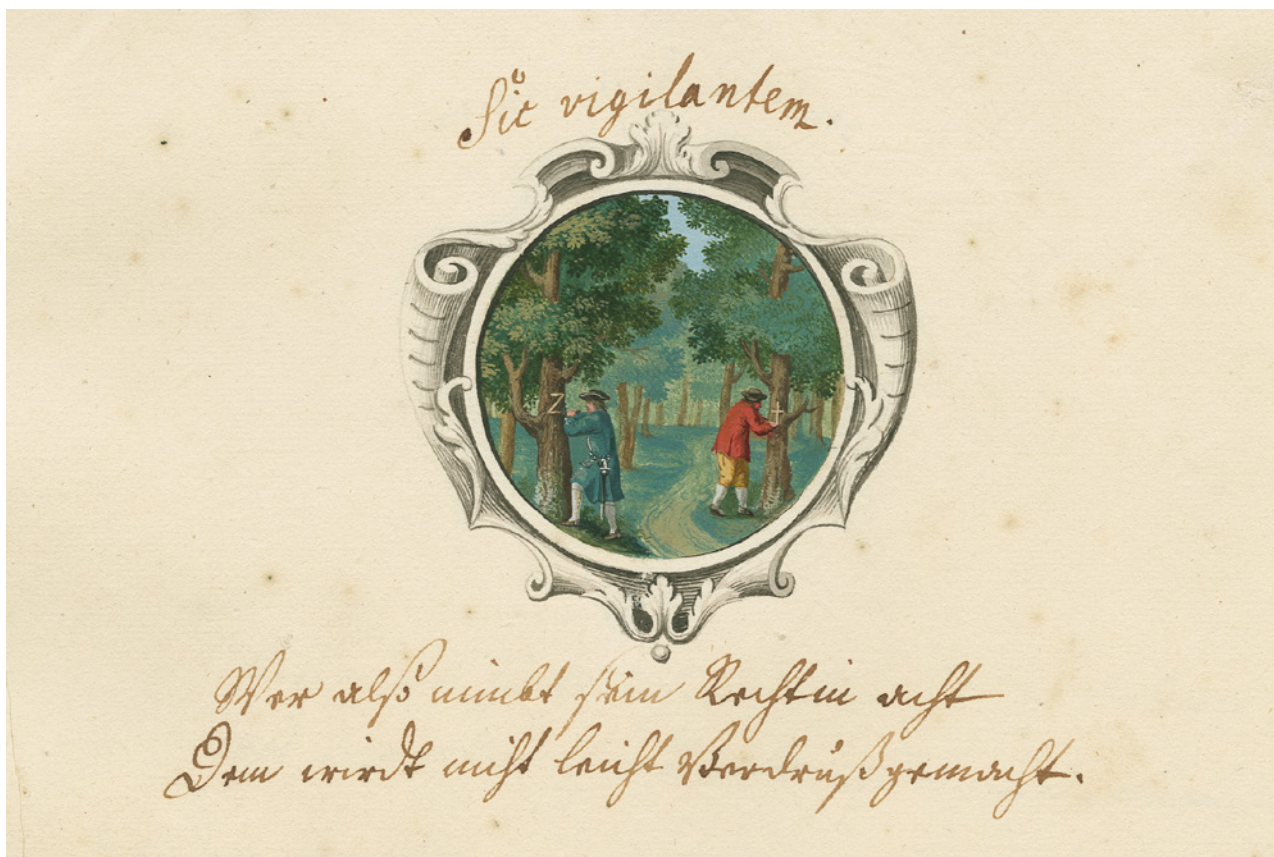 Sic vigilantem.
Z
†
Wer alß nimbt sein Recht in acht
Dem wirdt nicht leicht Verdruß gemacht.